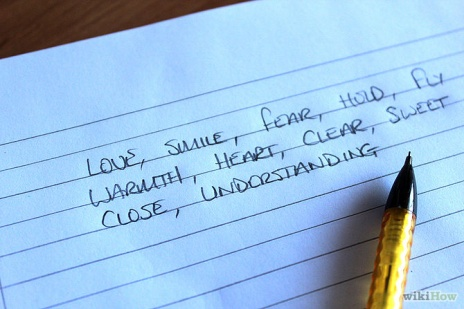 LOVE, SMILE, FEAR, HOLD, FLY
WARMTH, HEART, CLEAR, SWEET
CLOSE, UNDERSTANDING
wikiHow